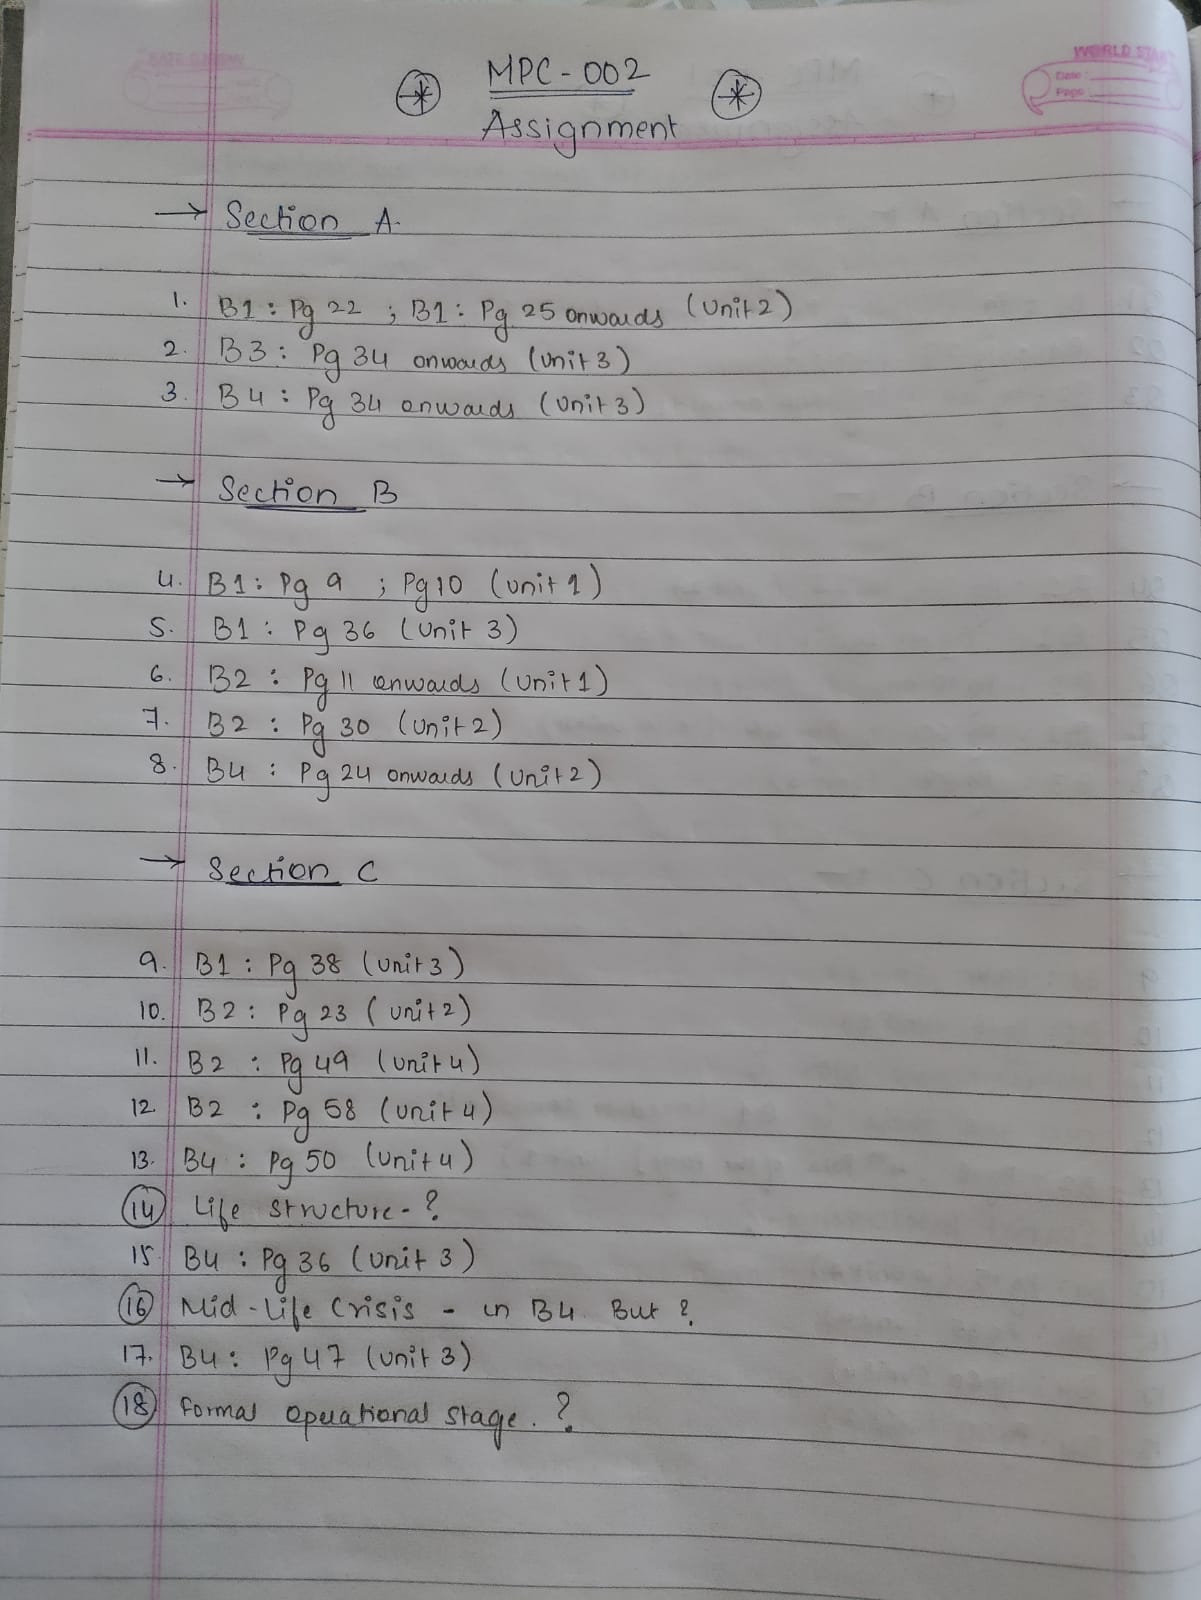 WORLD STAR
Date :
Page :
MPC - 002
Assignment
→ Section A.
1. B1 : Pg 22 ; B1 : Pg 25 onwards (Unit 2)
2. B3 : Pg 34 onwards (Unit 3)
3. B4 : Pg 34 onwards (Unit 3)
→ Section B
4. B1 : Pg 9 ; Pg 10 (Unit 1)
5. B1 : Pg 36 (Unit 3)
6. B2 : Pg 11 onwards (Unit 1)
7. B2 : Pg 30 (Unit 2)
8. B4 : Pg 24 onwards (Unit 2)
→ Section C
9. B1 : Pg 38 (Unit 3)
10. B2 : Pg 23 (Unit 2)
11. B2 : Pg 49 (Unit 4)
12. B2 : Pg 58 (Unit 4)
13. B4 : Pg 50 (Unit 4)
14 Life structure - ?
15. B4 : Pg 36 (Unit 3)
16 Mid-Life Crisis - in B4. But ?
17. B4 : Pg 47 (Unit 3)
18 Formal Operational Stage. ?